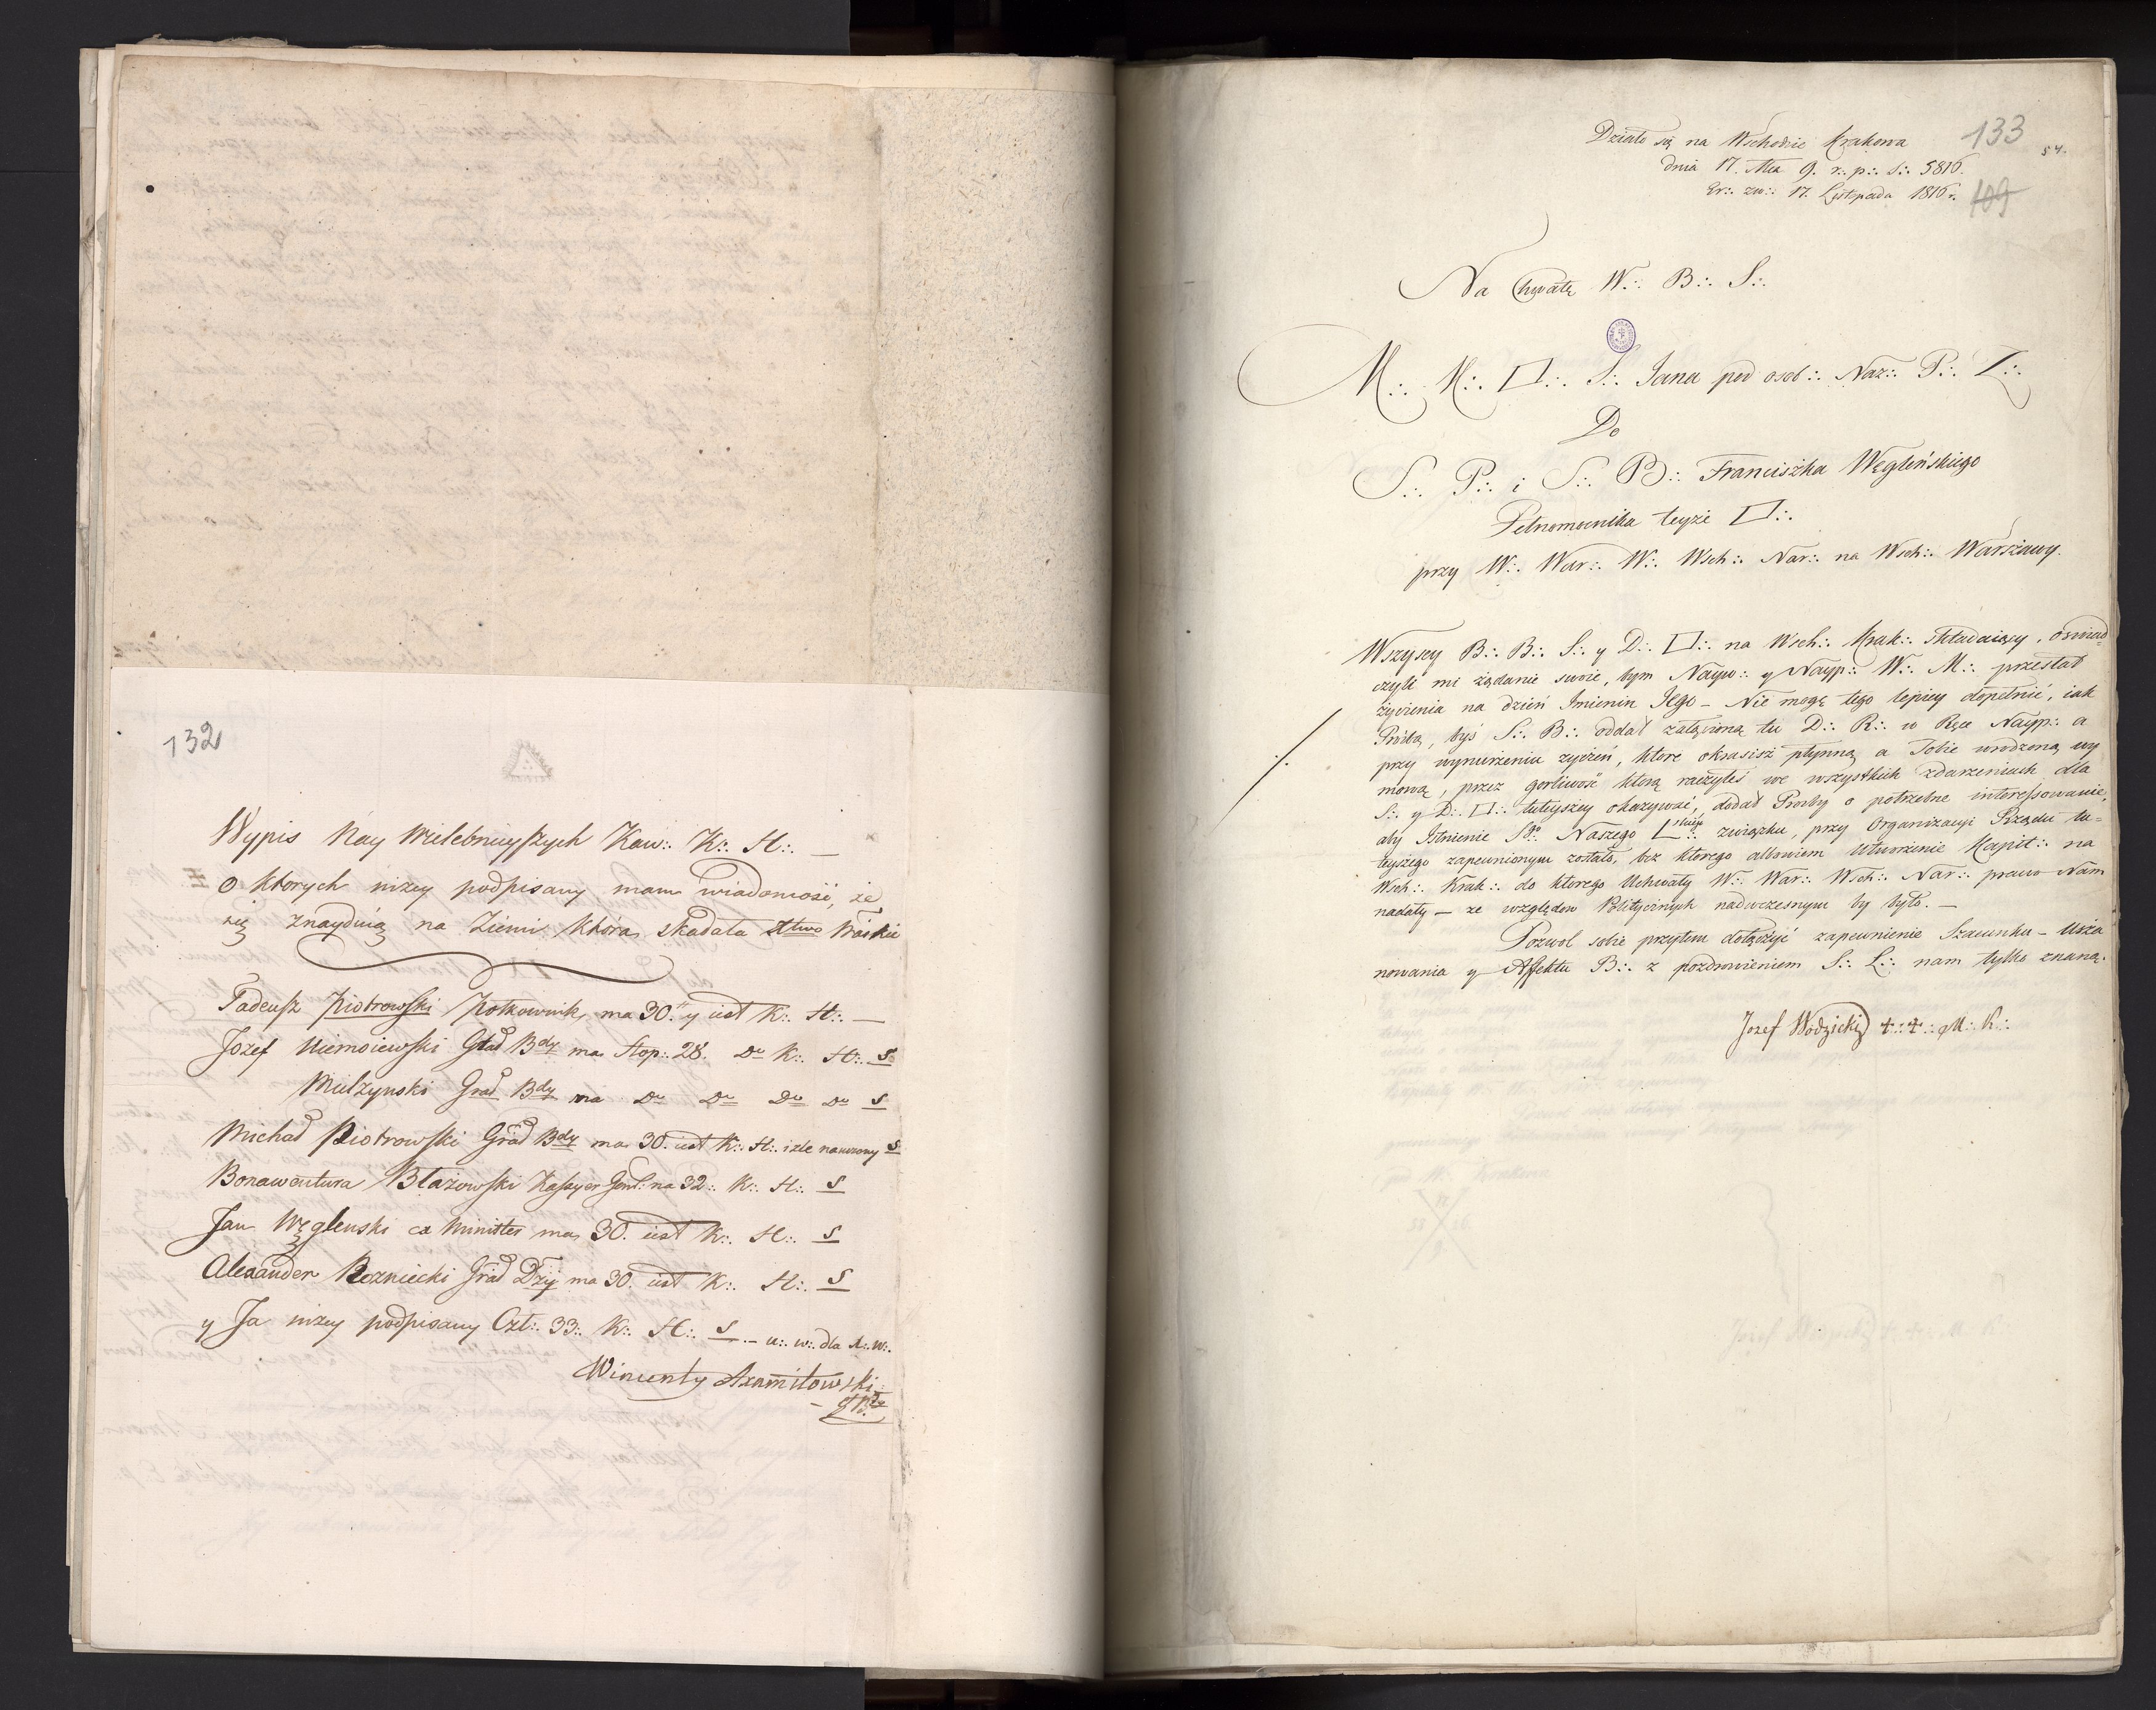 132
Wypis Nay Wielebnieyszych Kaw:. K:. H:. —
o ktorych niżey podpisany mam wiadomość, że
się znayduią na Ziemi która składała Xtwo Warskie
Tadeusz Piotrowski Półkownik, ma 30. y iest K:. H:. —
Jozef Niemoiewski Gład Bdy ma Stop: 28. Do K:. H:. S
Mielżynski Grał Bdy ma Do Do Do Do S
Michał Piotrowski Grał Bdy ma 30. iest K:. H:. i źle nauczony S
Bonawentura Błażowski Kassyer Genl: ma 32: K:. H:. S
Jan Węglenski ex Minister ma 30. iest K:. H:. S
Alexander Rozniecki Grał Dzyi ma 30. iest K:. H:. S
y Ja niżey podpisany Czł:. 33:. K:. H:. S — u:. w:. dla A:. W:.
Wincenty Axamitowski
GB
133
54.
109
Działo się na Wschodzie Krakowa
dnia 17. Mca 9. r:. p:. S:. 5816.
Er:. zw:. 17. Listopada 1816 r.
Na Chwałę W:. B:. S:.
M:. K:. □:. S:. Jana pod osob:. Naz:. P:. Z:.
Do
S:. P:. i S:. B:. Franciszka Węgleńskiego
Pełnomocnika teyże □:.
przy W:. War:. W:. Wsch:. Nar:. na Wsch:. Warszawy.
Wszyscy B:. B:. S:. y D:. □:. na Wsch:. Krak:. składaiący, oświad=
czyli mi żądanie swoie, bym Nayw:. y Nayp:. W:. M:. przesłał
życzenia na dzień Imienin Jego — Nie mogę tego lepiey dopełnić, iak
Prośbą, byś S:. B:. oddał załączoną tu D:. R:. w Ręce Nayp:. a
przy wynurzeniu życzeń, ktore okrasisz płynną a Tobie wrodzoną wy
mową, przez gorliwość którą raczyłeś we wszystkich zdarzeniach dla
S:. y D:. □:. tuteyszey okazywać, dodał Prośby o potrzebne interessowanie,
aby Istnienie Sgo Naszego Lskiego:. związku, przy Organizacyi Rządu tu=
teyszego zapewnionym zostało, bez ktorego albowiem Utworzenie Kapit:. na
Wsch:. Krak:. do ktorego Uchwały W:. War:. Wsch:. Nar:. prawo Nam
nadały — ze względow Politycznych nadwczesnym by było. —
Pozwol sobie przytem dołączyć zapewnienie Szacunku — Usza
nowania y Affektu B:. z pozdrowieniem S:. L:. nam tylko znaną.
Jozef Wodzicki ‡:.‡:. M:. K:.